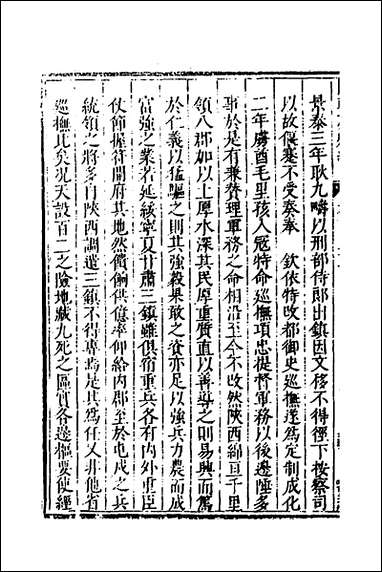 景泰三年耿九疇以刑部侍郎出鎮因文移不得徑下按察司
以故偃蹇不受奏奉　欽依特改都御史巡撫遂爲定制成化
二年虜酋毛里孩入寇特命巡撫項忠提督軍務以後邊陲多
事於是有兼賛理軍務之命相沿至今不改然陜西綿亘千里
領八郡加以土厚水深其民厚重質直以善導之則易興而篤
於仁義以猛驅之則其強毅果敢之資亦足以強兵力農而成
富強之業若延綏寧夏甘肅三鎮雖俱宿重兵各有内外重臣
仗節握符開府其地然儲餉供億率仰給内郡至於屯戍之兵
統領之將多自陜西調遣三鎮不得專焉是其爲任又非他省
巡撫比矣况天設百二之險地藏九死之區實各邊樞要使經